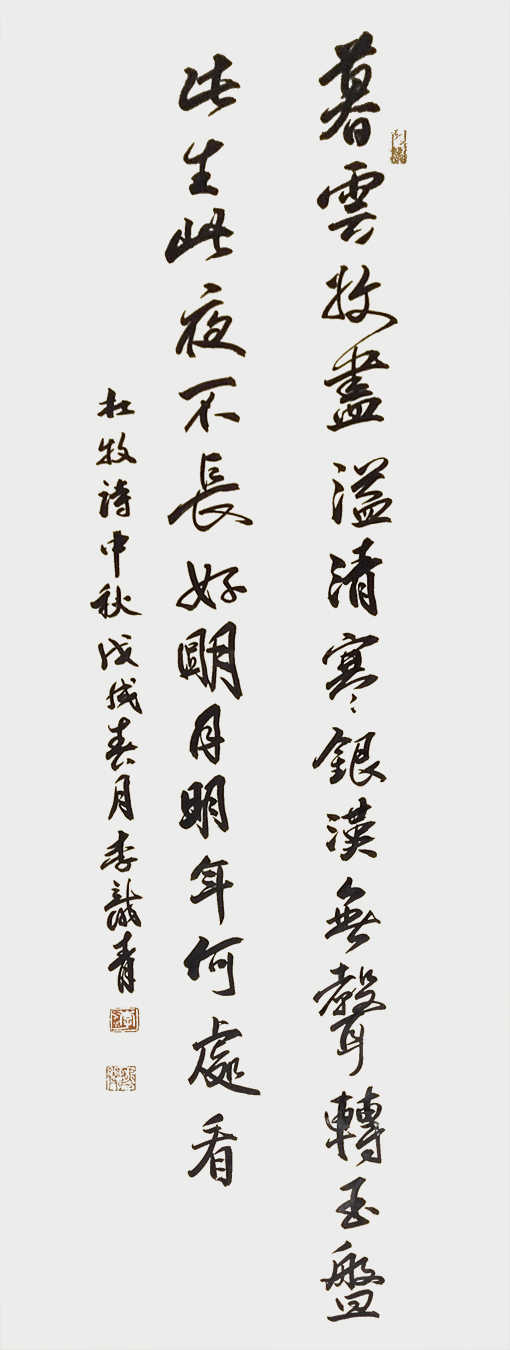 暮雲收盡溢清寒銀漢無聲轉玉盤
此生此夜不長好朙月明年何處看
杜牧詩中秋戊戌春月李青